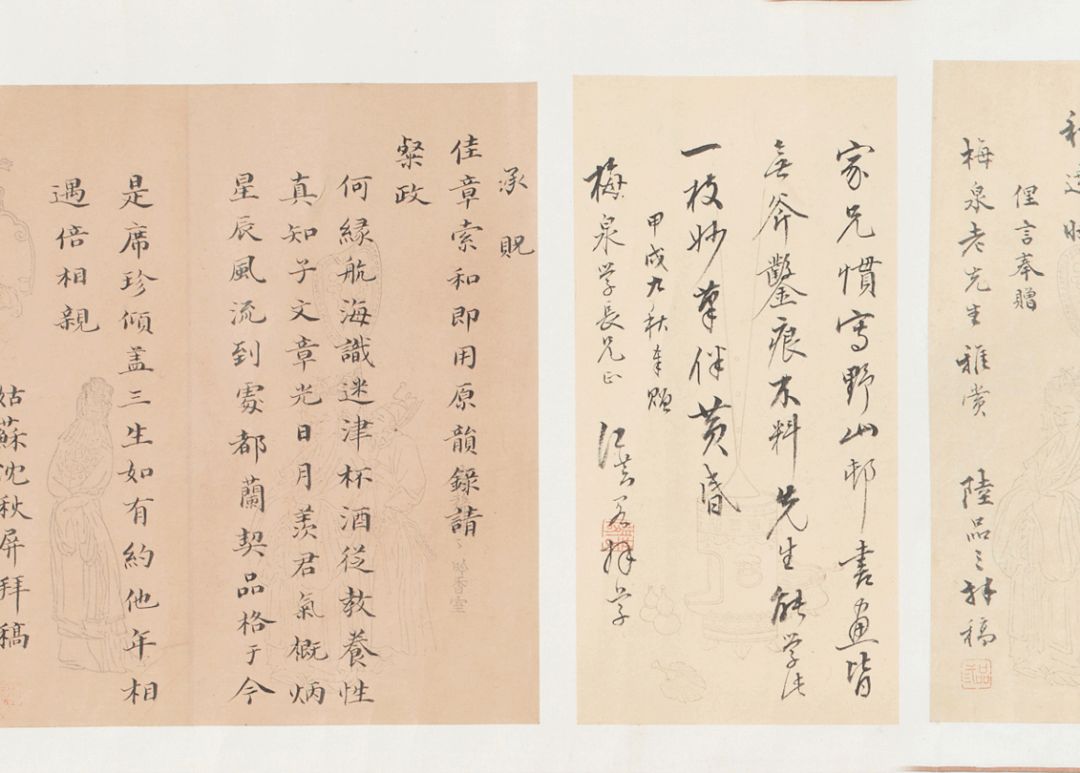 俚言奉贈
梅泉老先生雅赏
陸品三拜稿
家兄慣写野山邨書畫皆
無斧鑿痕不料先生能学此
一枝妙筆伴黄昏
甲戌九秋奉題
梅泉学長兄正
拜学
承貺
佳章索和即用原韻錄請
粲政
何緣航海識迷津杯酒從教養性
真知子文章光日月羨君氣概炳
星辰風流到處都蘭契品格于今
是席珍傾盖三生如有約他年相
遇倍相親
姑蘇沈秋屏拜稿
吟香室